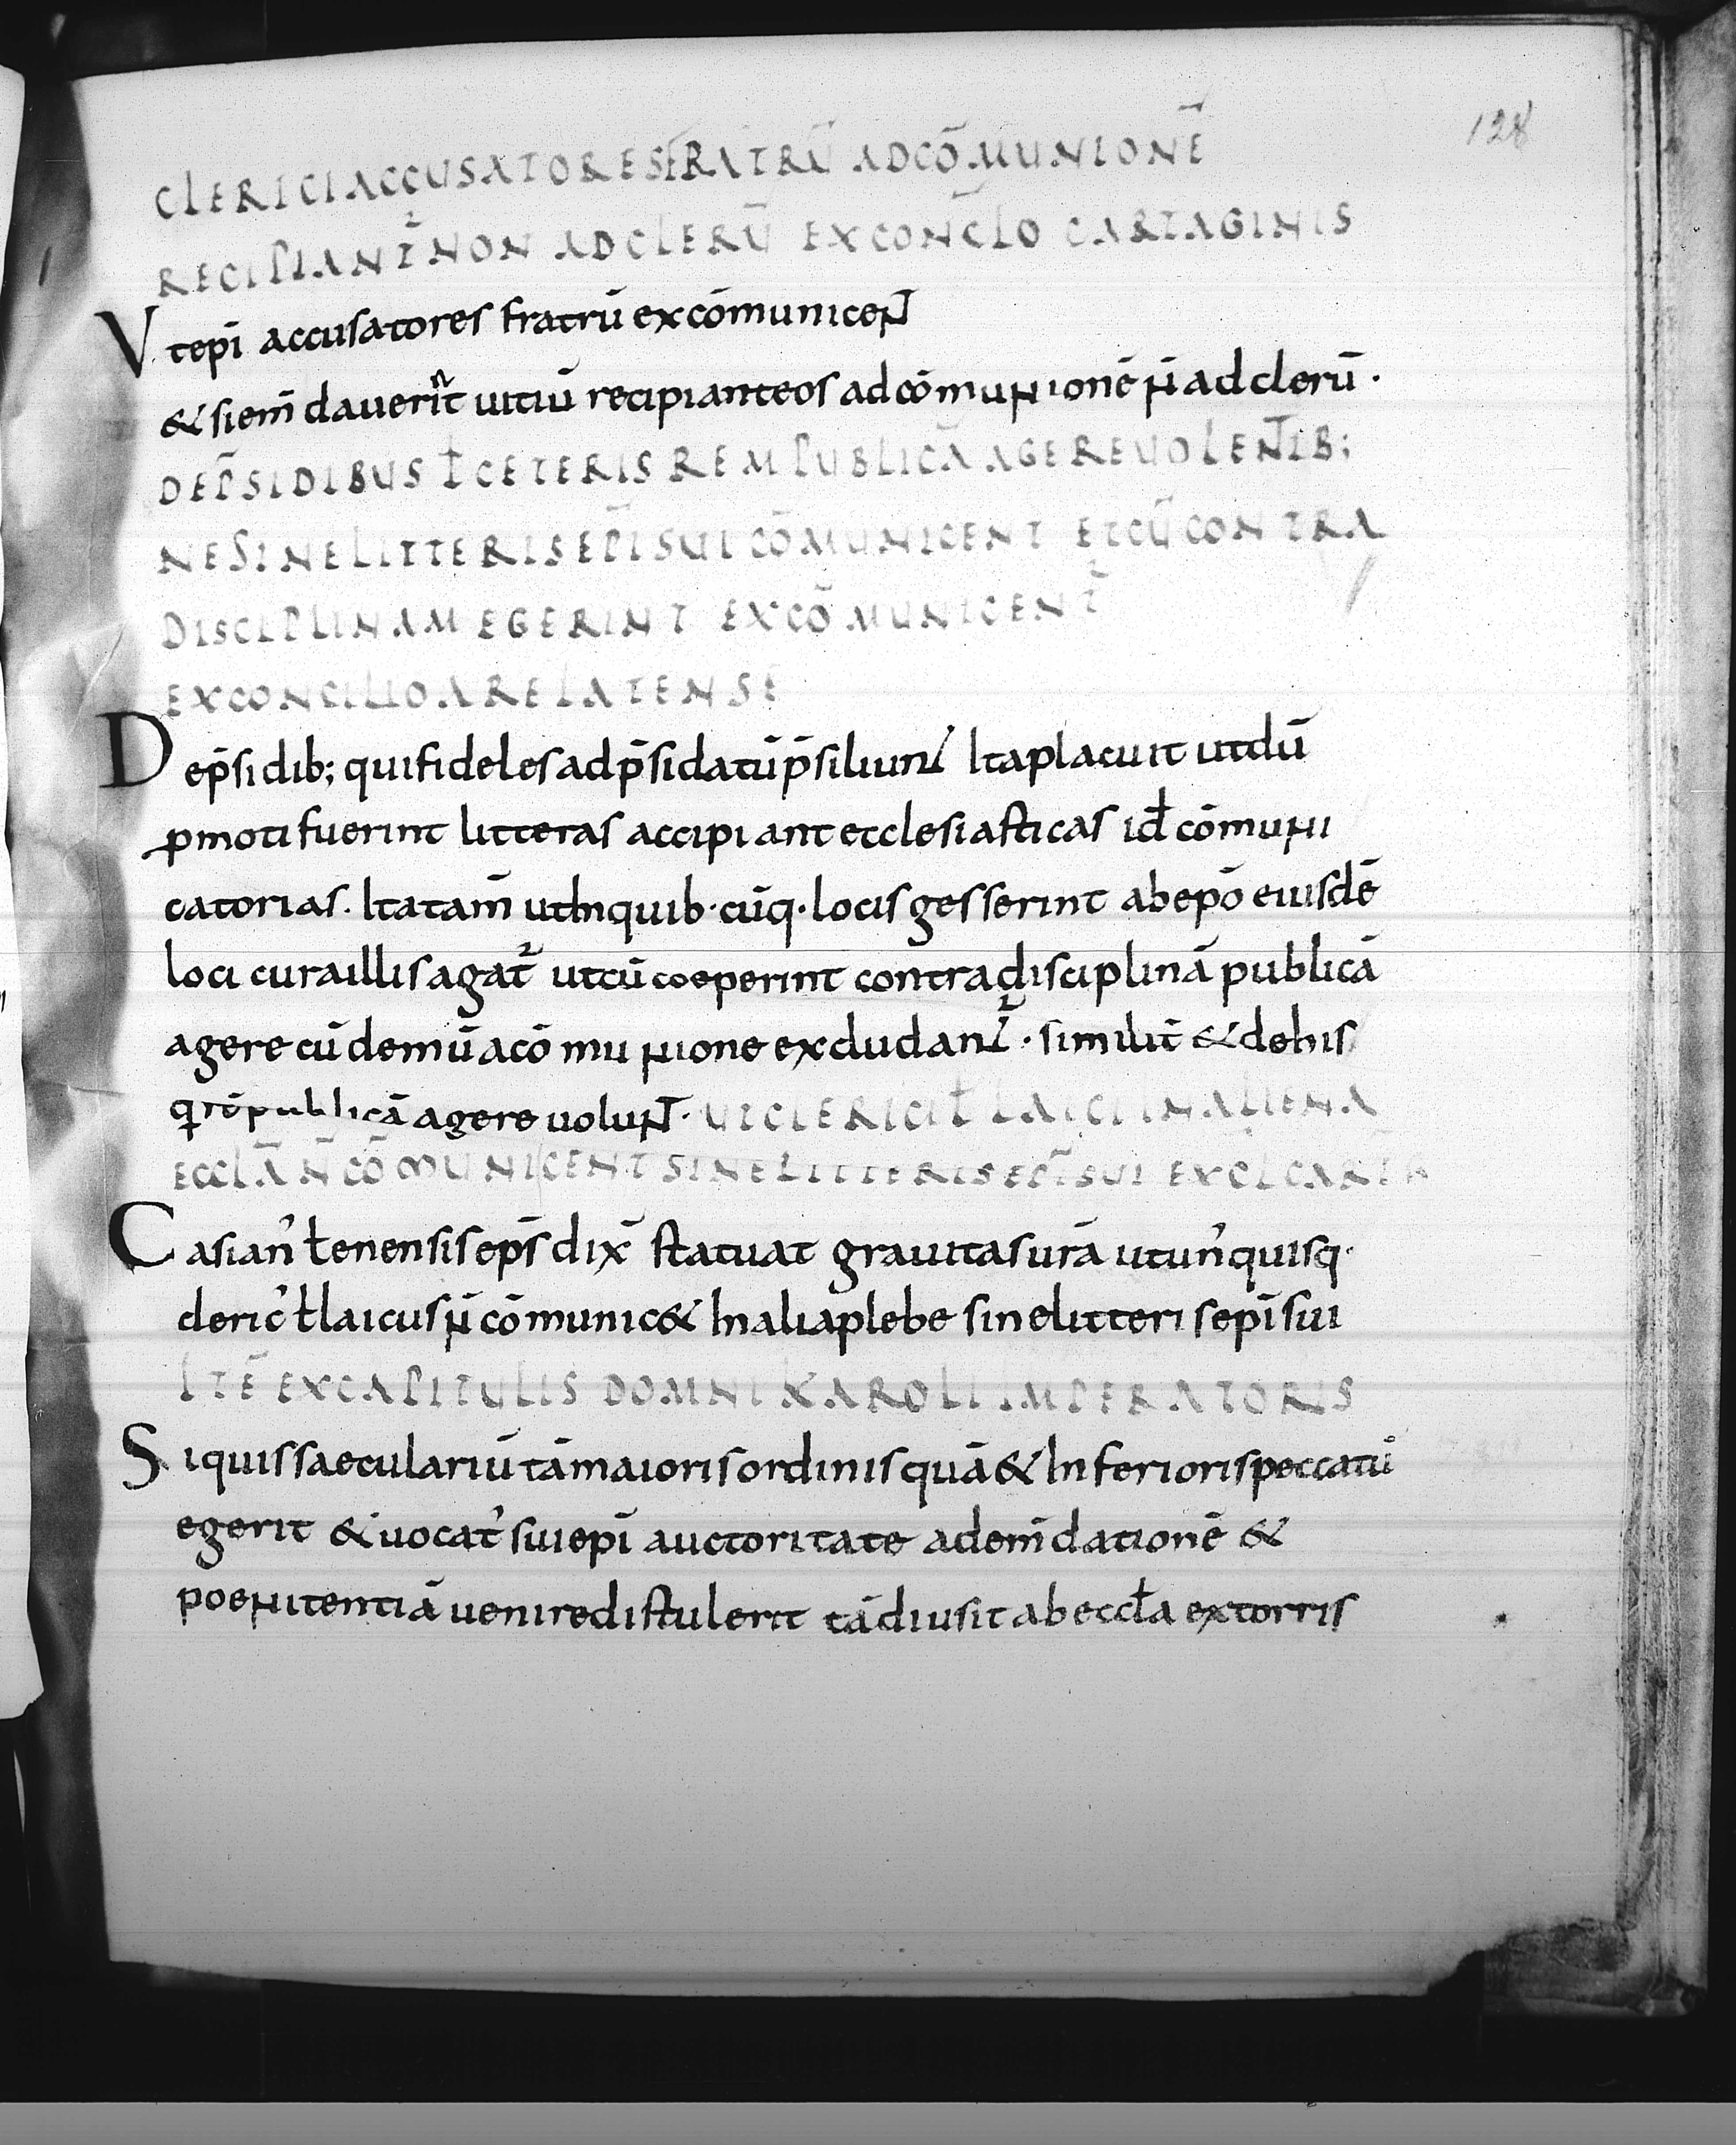 128
CLERICI ACCUSATORES FRATRU̅ AD CO̅MUNIONE̅
RECIPIANT̅ NON AD CLERU̅ EX CONC̅LO CARTAGINIS
Ut ep̅i accusatores fratru̅ exco̅municen̅t
& si em̅daueri̅t uitiu̅ recipiant eos ad co̅munione̅ n̅ ad cleru̅ ·
DE P̅SIDIBUS ł CETERIS REM PUBLICA̅ AGERE UOLENTIB;
NE SINE LITTERIS EP̅I SUI CO̅MUNICENT ET CU̅ CONTRA
DISCIPLINAM EGERINT EXCO̅MUNICENT̅
EX CONCILIO ARELATENSE
De p̅sidib; qui fideles ad p̅sidatu̅ p̅siliunt Ita placuit ut du̅
ꝑmoti fuerint litteras accipiant ecclesiasticas id̅ co̅muni
catorias. Ita tam̅ ut In quib· cu̅q· locis gesserint ab ep̅o eiusde̅
loci cura illis agat̅ ut cu̅ coeperint contra disciplina̅ publica̅
agere cu̅ demu̅ a co̅munione excludant̅ · similit̅ & de his
q re̅publica̅ agere uolun̅t · UT CLERICI ł LAICI IN ALIENA
ECCLA̅ N̅ CO̅MUNICENT SINE LITTERIS EP̅I SUI EX C̅L CARTA
Casian' ł enensis ep̅s dix̅ statuat grauitas u̅ra̅ ut un' quisq·
cleric' ł laicus n̅ co̅munic& In alia plebe sine litteris ep̅i sui
ITE̅ EX CAPITULIS DOMNI KAROLI IMPERATORIS
Si quis saeculariu̅ ta̅ maioris ordinis qua̅ & Inferioris peccatu̅
egerit & uocat' sui ep̅i auctoritate ad em̅datione̅ &
poenitentia̅ uenire distulerit ta̅diu sit ab eccła extorris